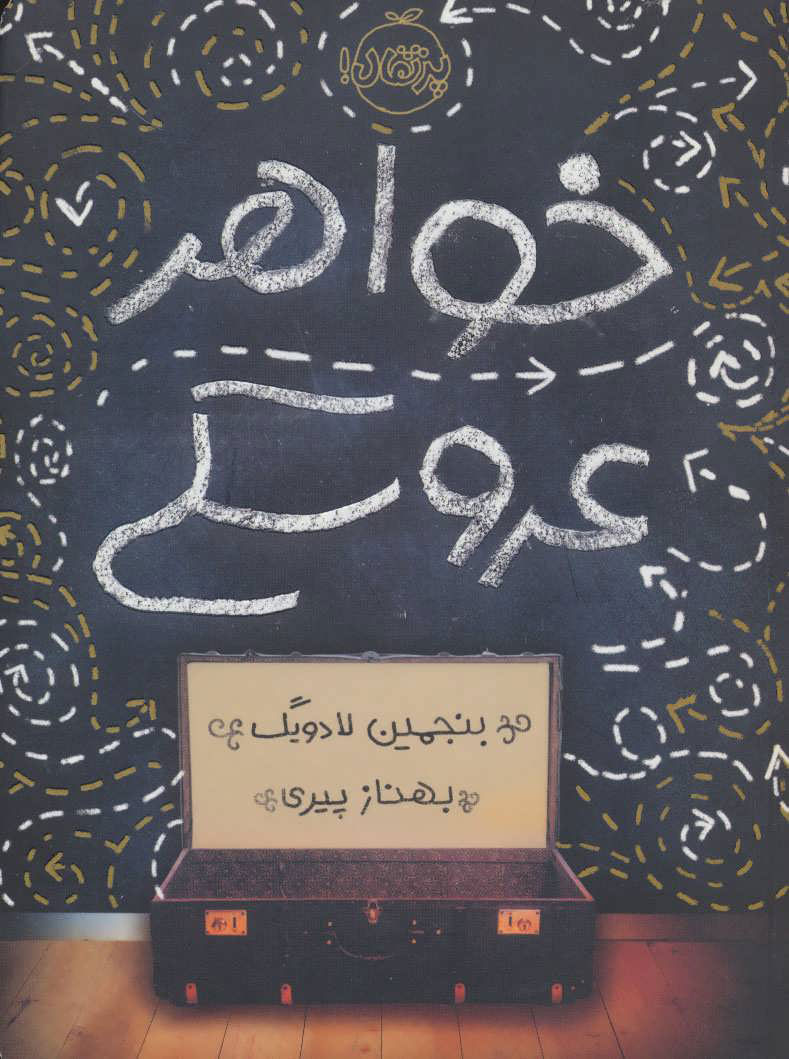 پرتقال!
خواهر
عروسکی
بنجمین لادویگ
بهناز پیری